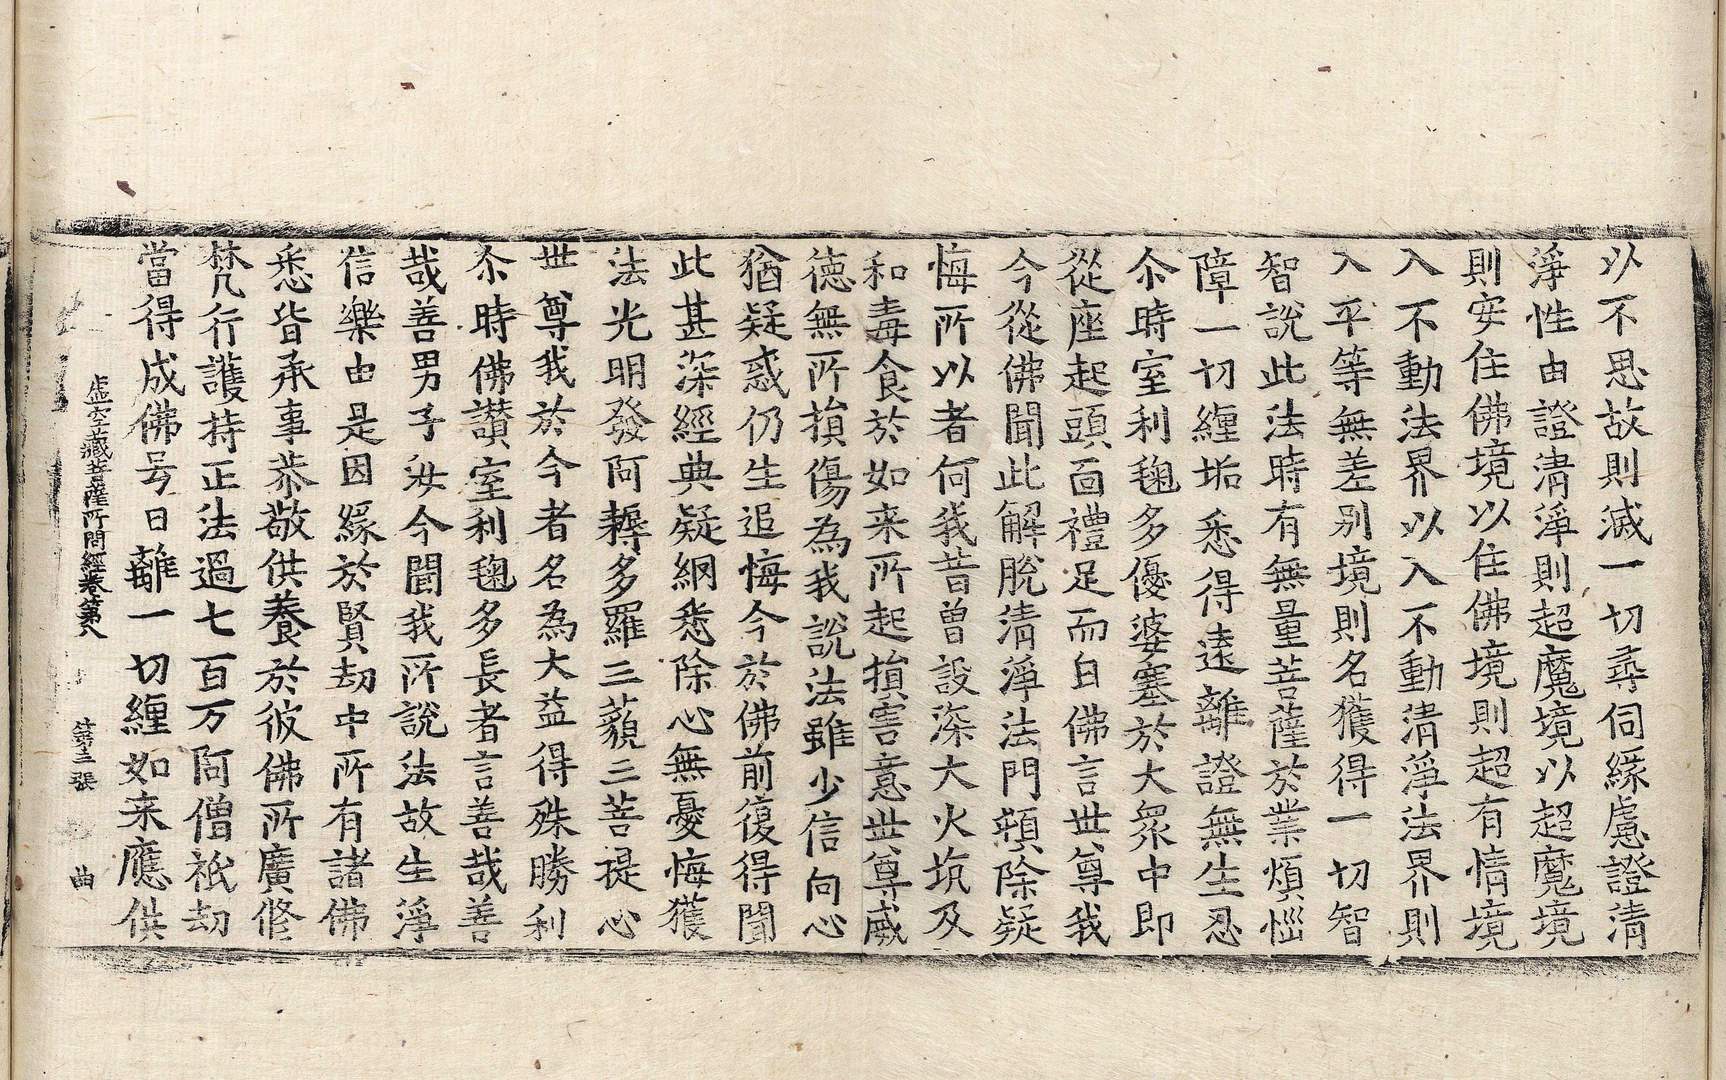 以不思故則滅一切尋伺緣慮證清
淨性由證清淨則超魔境以超魔境
則安住佛境以住佛境則超有情境
入不動法界以入不動清淨法界則
入平等無差别境則名獲得一切智
智說此法時有無量菩薩於業煩惱
障一切纏垢悉得遠離證無生忍
尒時室利毱多優婆塞於大眾中即
從座起頭面禮足而白佛言世尊我
今從佛聞此解脫清淨法門頓除疑
悔所以者何我昔曾設深大火坑及
和毒食於如来所起損害意世尊威
德無所損傷為我說法雖少信向心
猶疑惑仍生追悔今於佛前復得聞
此甚深經典疑網悉除心無憂悔獲
法光明發阿耨多羅三藐三菩提心
世尊我於今者名為大益得殊勝利
尒時佛讚室利毱多長者言善哉善
哉善男子汝今聞我所說法故生淨
信樂由是因緣於賢劫中所有諸佛
悉皆承事恭敬供養於彼佛所廣修
梵行護持正法過七百万阿僧祇劫
當得成佛号曰離一切纏如来應供
虛空藏菩薩所問經卷第八 第三張 曲